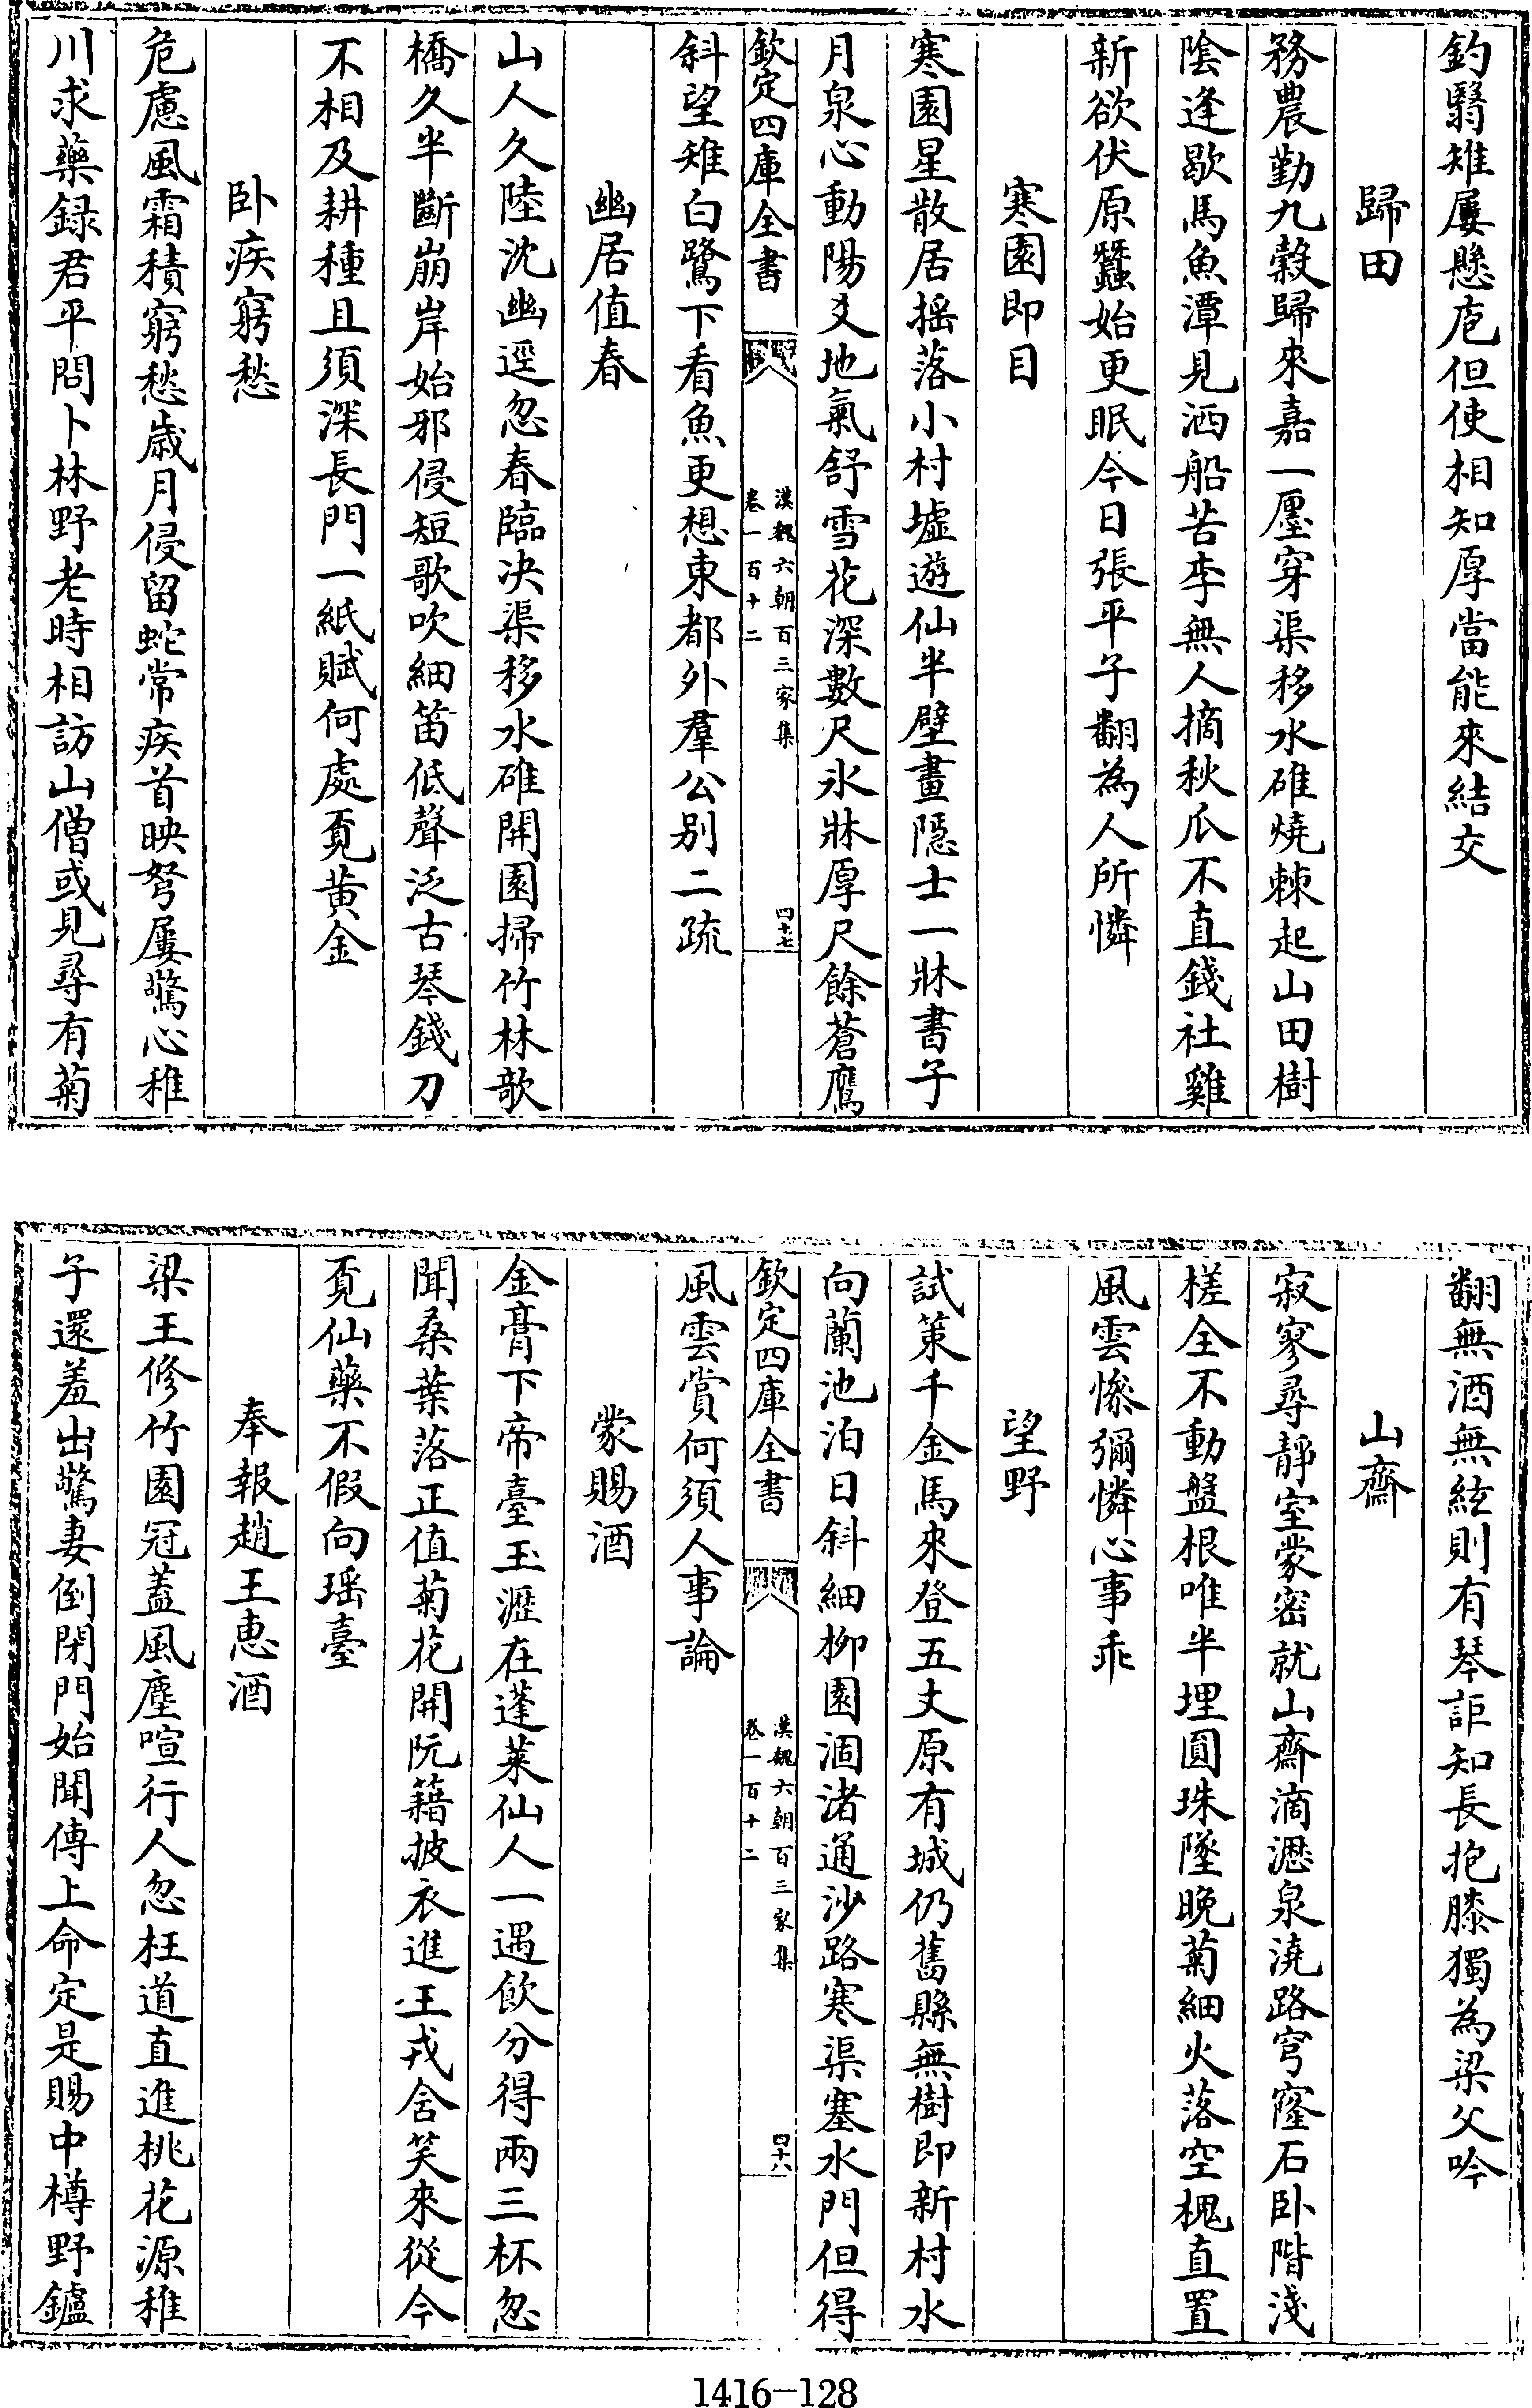 釣翳雉屢懸庖但使相知厚當能來結交
歸田
務農勤九穀歸來嘉一廛穿渠移水碓燒棘起山田樹
隂逢歇馬魚潭見洒船苦李無人摘秋瓜不直錢社雞
新欲伏原蠶始更眠今日張平子翻為人所憐
寒園即目
寒園星散居搖落小村墟遊仙半壁畫隱士一牀書子
月泉心動陽爻地氣舒雪花深數尺氷牀厚尺餘蒼鷹
欽定四庫全書
漢魏六朝百三家集
卷一百十二
四十七
斜望雉白鷺下看魚更想東都外羣公别二疏
幽居值春
山人久陸沈幽逕忽春臨决渠移水碓開園掃竹林欹
橋久半斷崩岸始邪侵短歌吹細笛低聲泛古琴錢刀
不相及耕種且須深長門一紙賦何處覓黄金
卧疾窮愁
危慮風霜積窮愁歳月侵留蛇常疾首映弩屢驚心稚
川求藥録君平問卜林野老時相訪山僧或見尋有菊
翻無酒無絃則有琴詎知長抱膝獨為梁父吟
山齋
寂寥尋靜室蒙密就山齋滴瀝泉澆路穹窿石卧階淺
槎全不動盤根唯半埋圓珠墜晚菊細火落空槐直置
風雲慘彌憐心事乖
望野
試策千金馬來登五丈原有城仍舊縣無樹即新村水
向蘭池泊日斜細柳園涸渚通沙路寒渠塞水門但得
欽定四庫全書
漢魏六朝百三家集
卷一百十二
四十八
風雲賞何須人事論
蒙賜酒
金膏下帝臺玉瀝在蓬萊仙人一遇飲分得兩三杯忽
聞桑葉落正值菊花開阮籍披衣進王戎舍笑來從今
覓仙藥不假向瑶臺
奉報趙王惠酒
梁王修竹園冠蓋風塵喧行人忽枉道直進桃花源稚
子還羞出驚妻倒閉門始聞傳上命定是賜中樽野鑪
1416-128